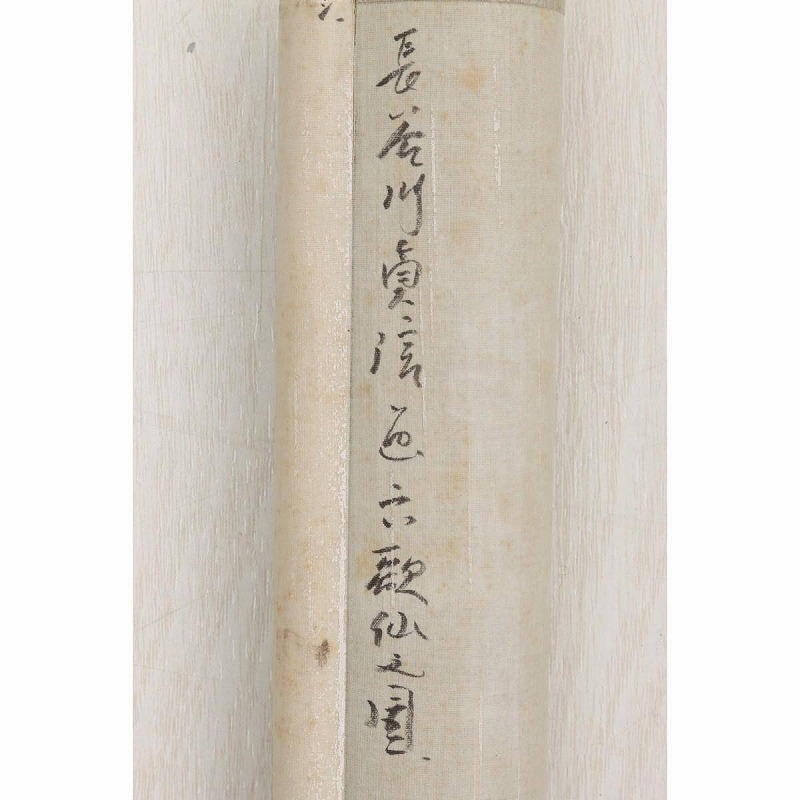 長谷川貞信 六歌仙之圖